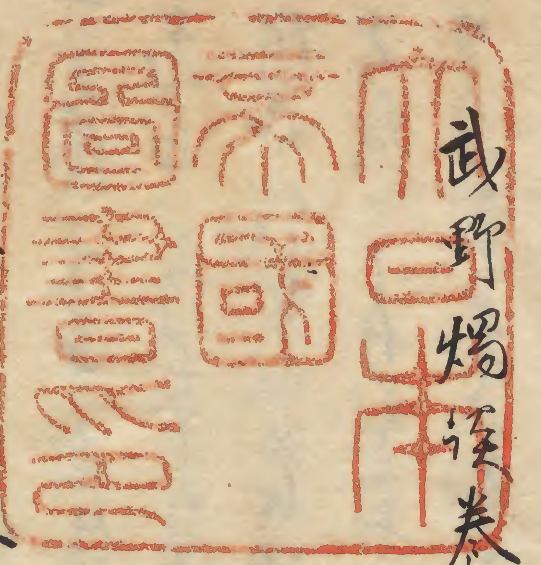 武野燭談巻
大日本
帝國
圖書印